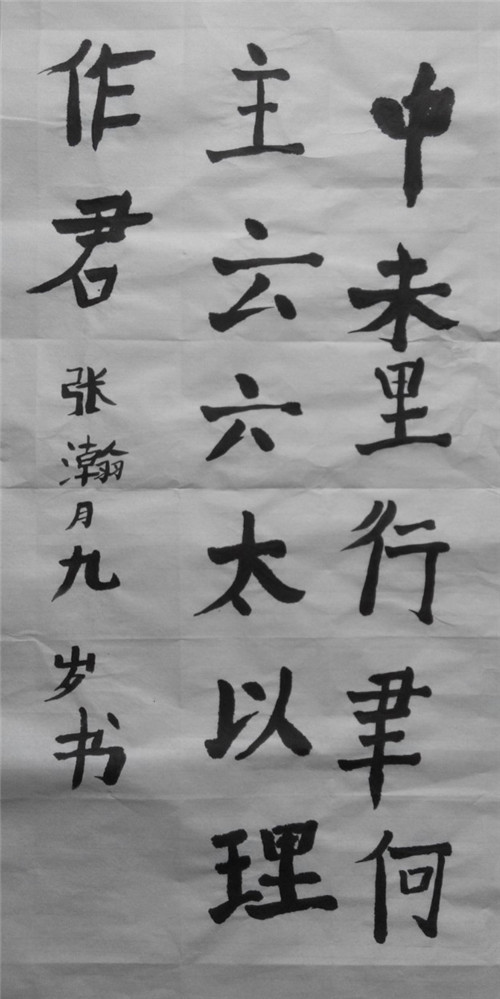 中未里行聿何
主云六太以理
作君 张瀚月九岁书